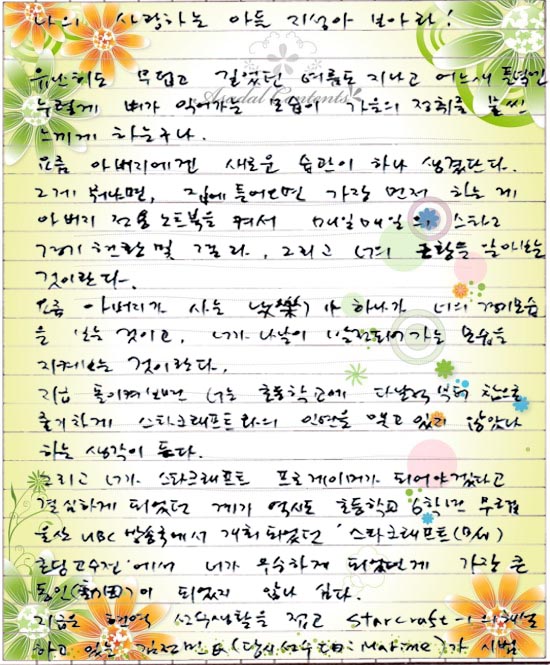 나의 사랑하는 아들 지성아 보아라!
유난히도 무덥고 길었던 여름도 지나고 어느새 들녘엔
누렇게 벼가 익어가는 모습이 가을의 정취를 물씬
느끼게 하는구나.
요즘 아버지에겐 새로운 습관이 하나 생겼단다.
그게 뭐냐면, 집에 들어오면 가장 먼저 하는 게
아버지 전용 노트북을 켜서 매일매일의 스타크
경기 현황 및 결과, 그리고 너의 근황을 알아보는
것이란다.
요즘 아버지가 사는 낙(樂)中 하나가 너의 경기모습
을 보는 것이고, 너가 나날이 발전되어가는 모습을
지켜보는 것이란다.
지금 돌이켜보면 너는 초등학교에 다닐적부터 참으로
즐기하게 스타크래프트와의 인연을 맺고 있지 않았나
하는 생각이 든다.
그리고 너가 스타크래프트 프로게이머가 되어야겠다고
결심하게 되었던 계기 역시도 초등학교 6학년 무렵
울산 UBC 방송국에서 개최 되었던 '스타크래프트
고수전'에서 너가 우수하게 되었던게 가장 큰
동인(動因)이 되었지 않나 싶다.
지금은 현역 선수생활을 접고 StarCraft-1의 해설
하고 있는 김정민 (당시 선수 ID: Marine)가 시범
Asadal Contents